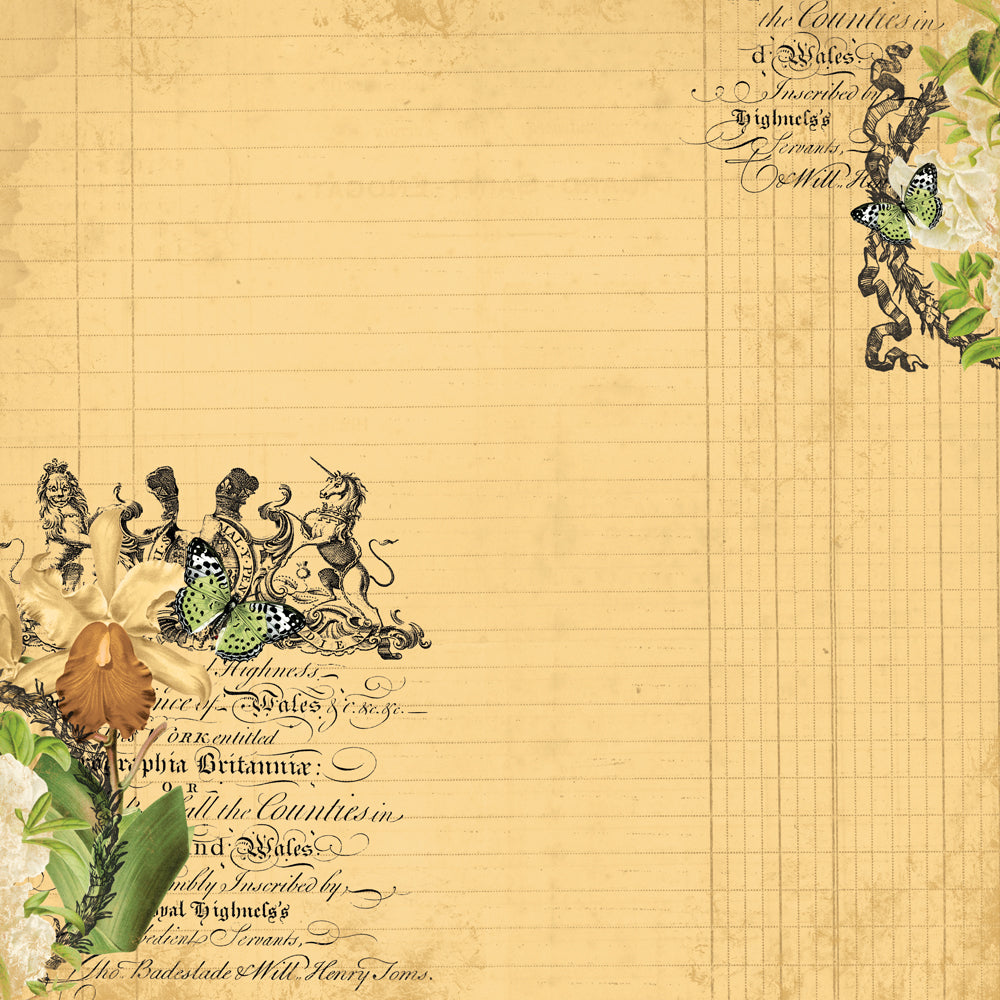 the Counties in
d Wales.
Inscribed by
Highneſs's
Servants,
& Will.. He
MAL·Y·PEN
DIE
Highness,
nce of Wales &c. &c. &c.
WORK entitled
raphia Britanniæ:
OR
all the Counties in
nd Wales.
mbly Inscribed by,
oyal Highneſs's
bedient Servants,
Tho. Badeslade & Will.. Henry Toms.